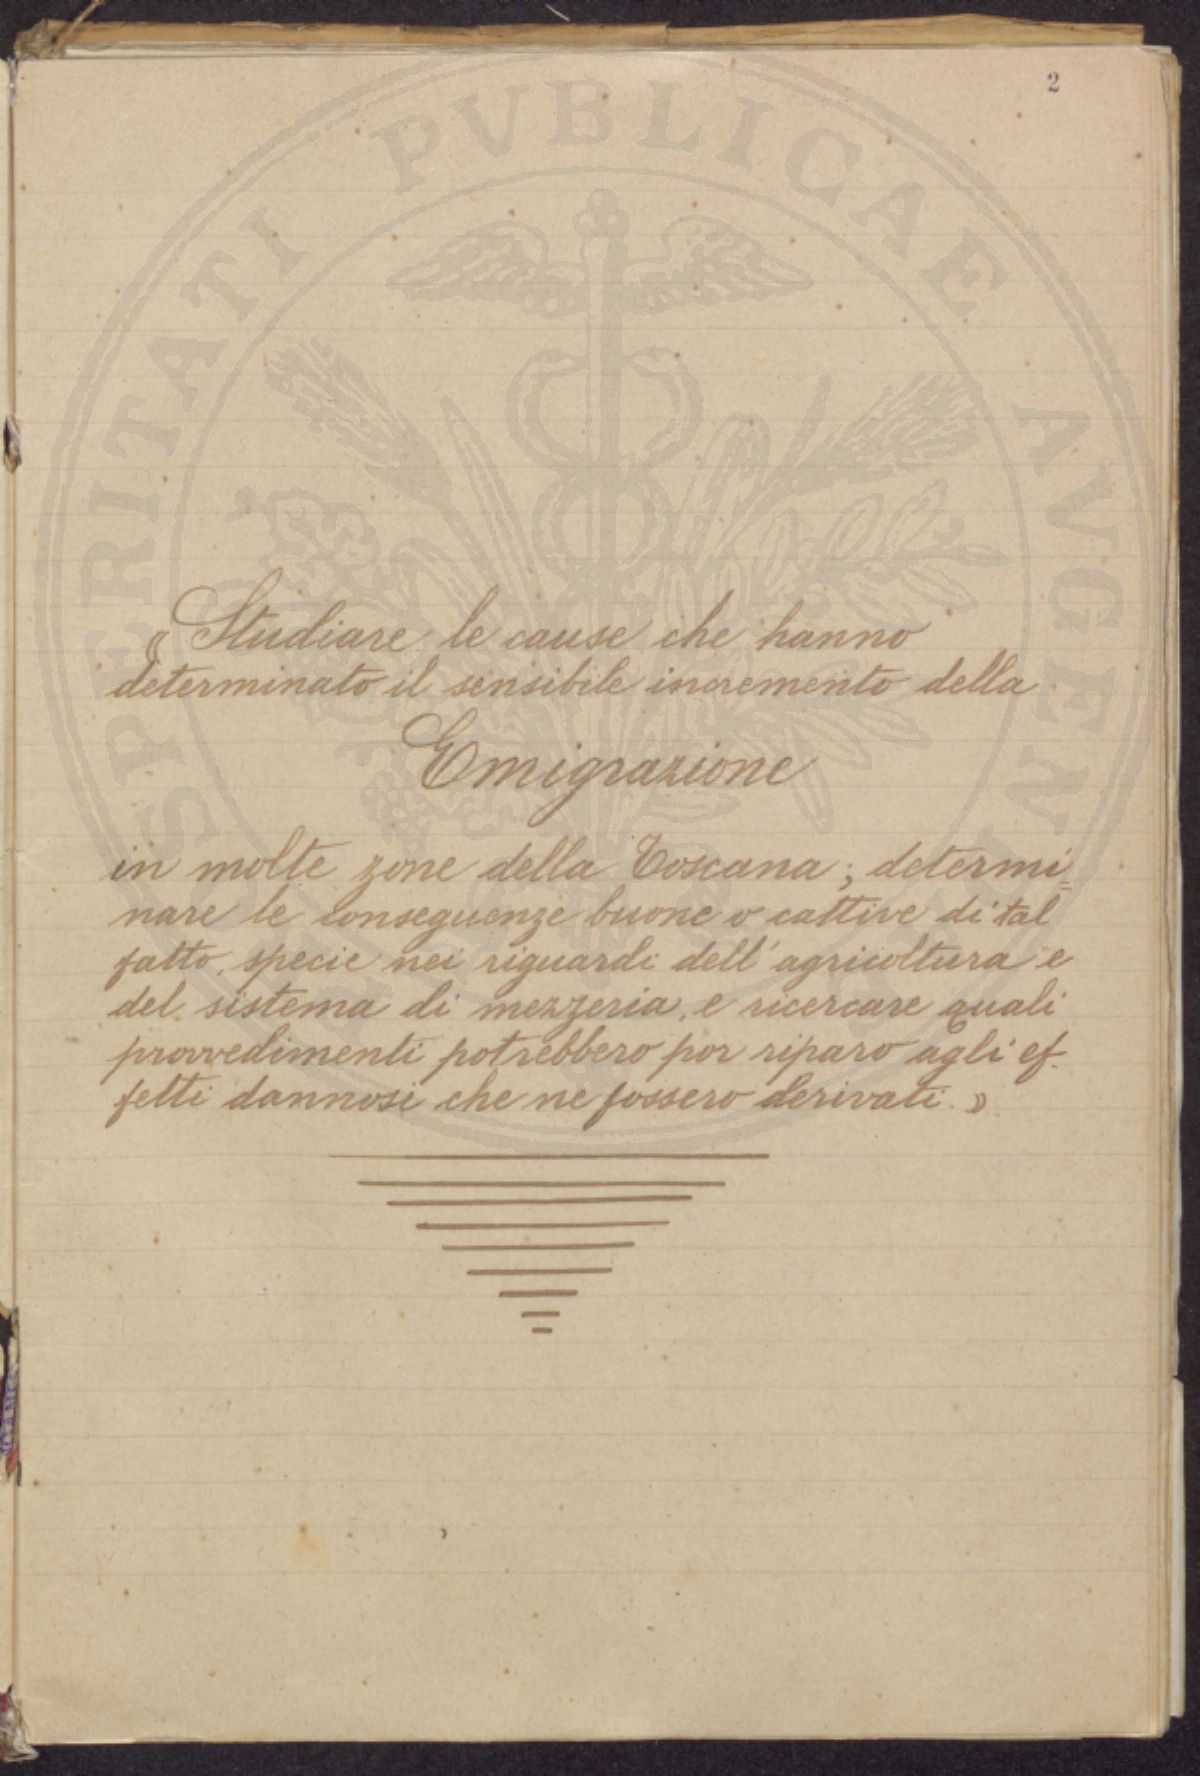 2
PROSPERITATI PVBLICAE AVGENDAE
« Studiare le cause che hanno
determinato il sensibile incremento della
Emigrazione
in molte zone della Toscana; determi=
nare le conseguenze buone o cattive di tal
fatto, specie nei riguardi dell'agricoltura e
del sistema di mezzeria, e ricercare quali
provvedimenti potrebbero por riparo agli ef-
fetti dannosi che ne fossero derivati. »